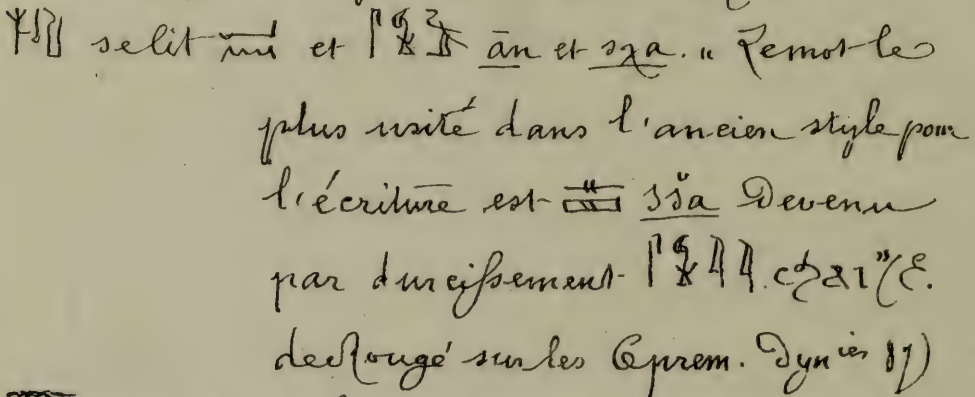 se lit et ān et sχa. „ Le mot le
plus usité dans l'ancien style pour
l'écriture est sša Devenu
par durcissement ⲥϧⲁⲓ" (E.
de Rougé sur les 6 prem. Dyn ies 87)